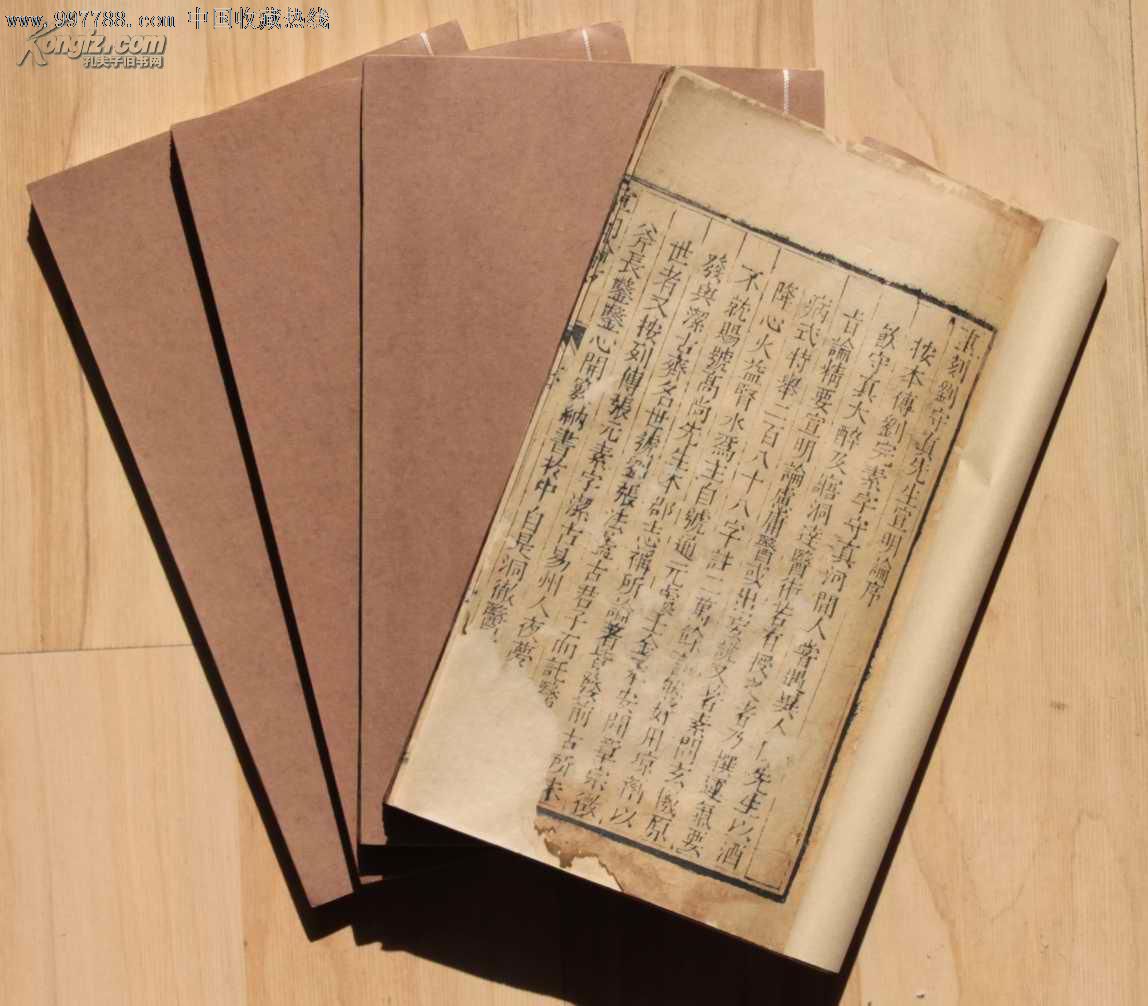 www.997788.com 中国收藏热线
Kongfz.com
孔夫子旧书网
重刻劉守真先生宣明論序
按本傳劉完素字守真河間人嘗遇異人 先生以酒
飲守真大醉及寤洞達醫術若有授之者乃撰運氣要
旨論精要宣明論慮庸醫或出妄說又著素問玄機原
病式特舉二百八十八字註二萬餘 然好用凉劑以
降心火益腎水爲主自號通元處士金 安間章宗徵
不就賜號髙尚先生本郡志稱所論著皆發前古所未
發與潔古齊名世號劉張法葢古君子而託醫
世者又按列傳張元素字潔古易州人夜夢
斧長鑿鑿心開竅納書於中自是洞徹醫